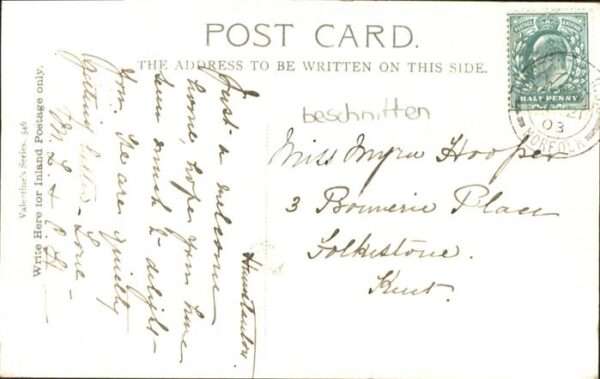 POST CARD.
THE ADDRESS TO BE WRITTEN ON THIS SIDE.
HALF PENNY
21
03
NORFOLK
beschnitten
Miss Myra Hooper
3 Bouverie Place
Folkestone.
Kent.
Valentine's Series. 346
Write Here for Inland Postage only.
Hunstanton.
Just a welcome
home, hope you have
seen much to delight
you. We are quietly
getting better - Love
M. L. &